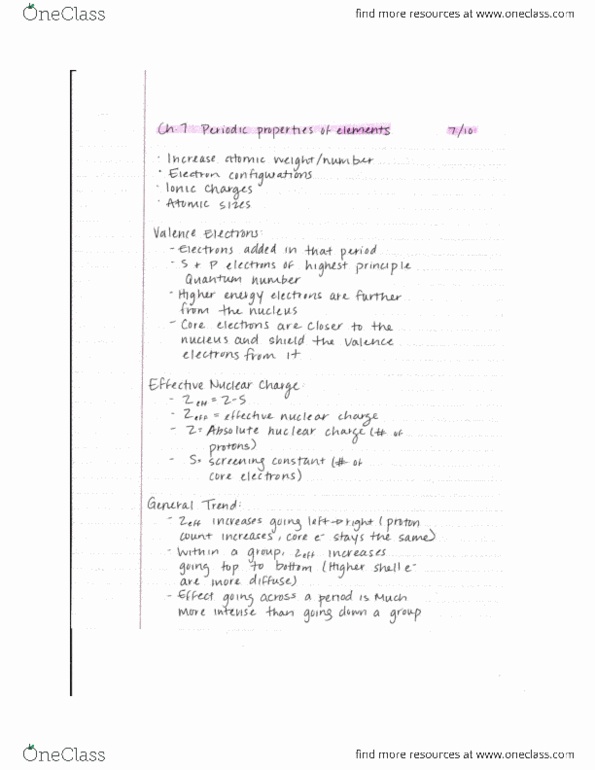 OneClass
find more resources at www.oneclass.com
Ch.7 Periodic properties of elements 7/10
· Increase atomic weight/number
· Electron configurations
· Ionic charges
· Atomic sizes
Valence Electrons:
- Electrons added in that period
- S + P electrons of highest principle
Quantum number
- Higher energy electrons are further
from the nucleus
- Core electrons are closer to the
nucleus and shield the valence
electrons from it
Effective Nuclear Charge:
- Zeff = Z-S
- Zeff = effective nuclear charge
- Z = Absolute nuclear charge (# of
protons)
- S = screening constant (# of
core electrons)
General Trend:
- Zeff increases going left→right (proton
count increases, core e⁻ stays the same)
- Within a group, Zeff increases
going top to bottom (Higher shell e⁻
are more diffuse)
- Effect going across a period is Much
more intense than going down a group
OneClass
find more resources at www.oneclass.com